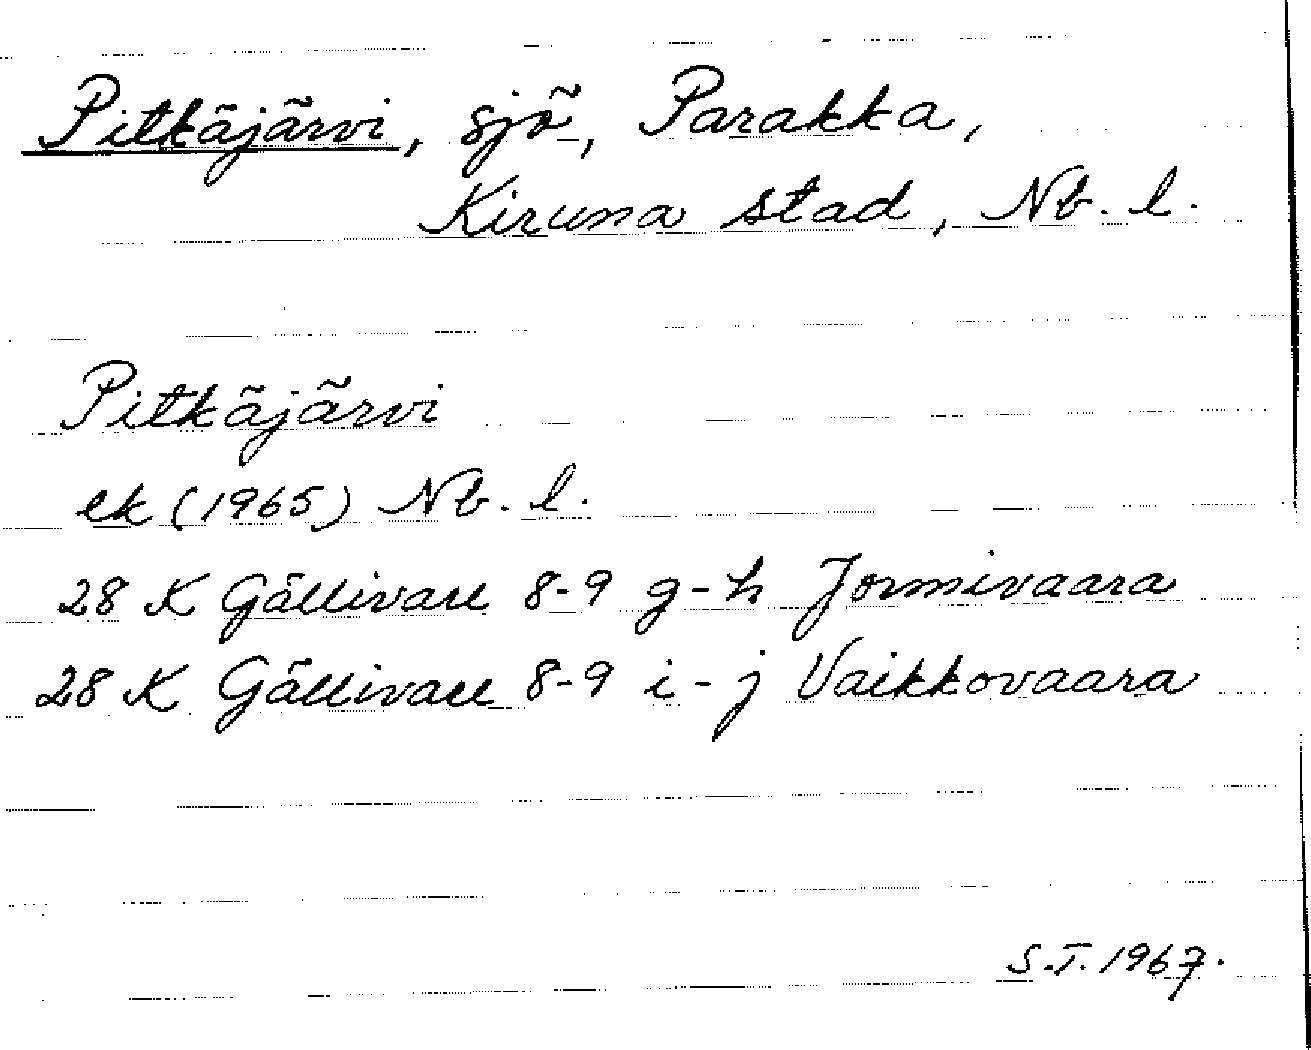 Pitkäjärvi, sjö, Parakka,
Kiruna stad, Nb. l.
Pitkäjärvi
ek (1965) Nb. l.
28 K Gällivare 8-9 g-h Jormivaara
28 K Gällivare 8-9 i-j Vaikkovaara
S.T. 1967.